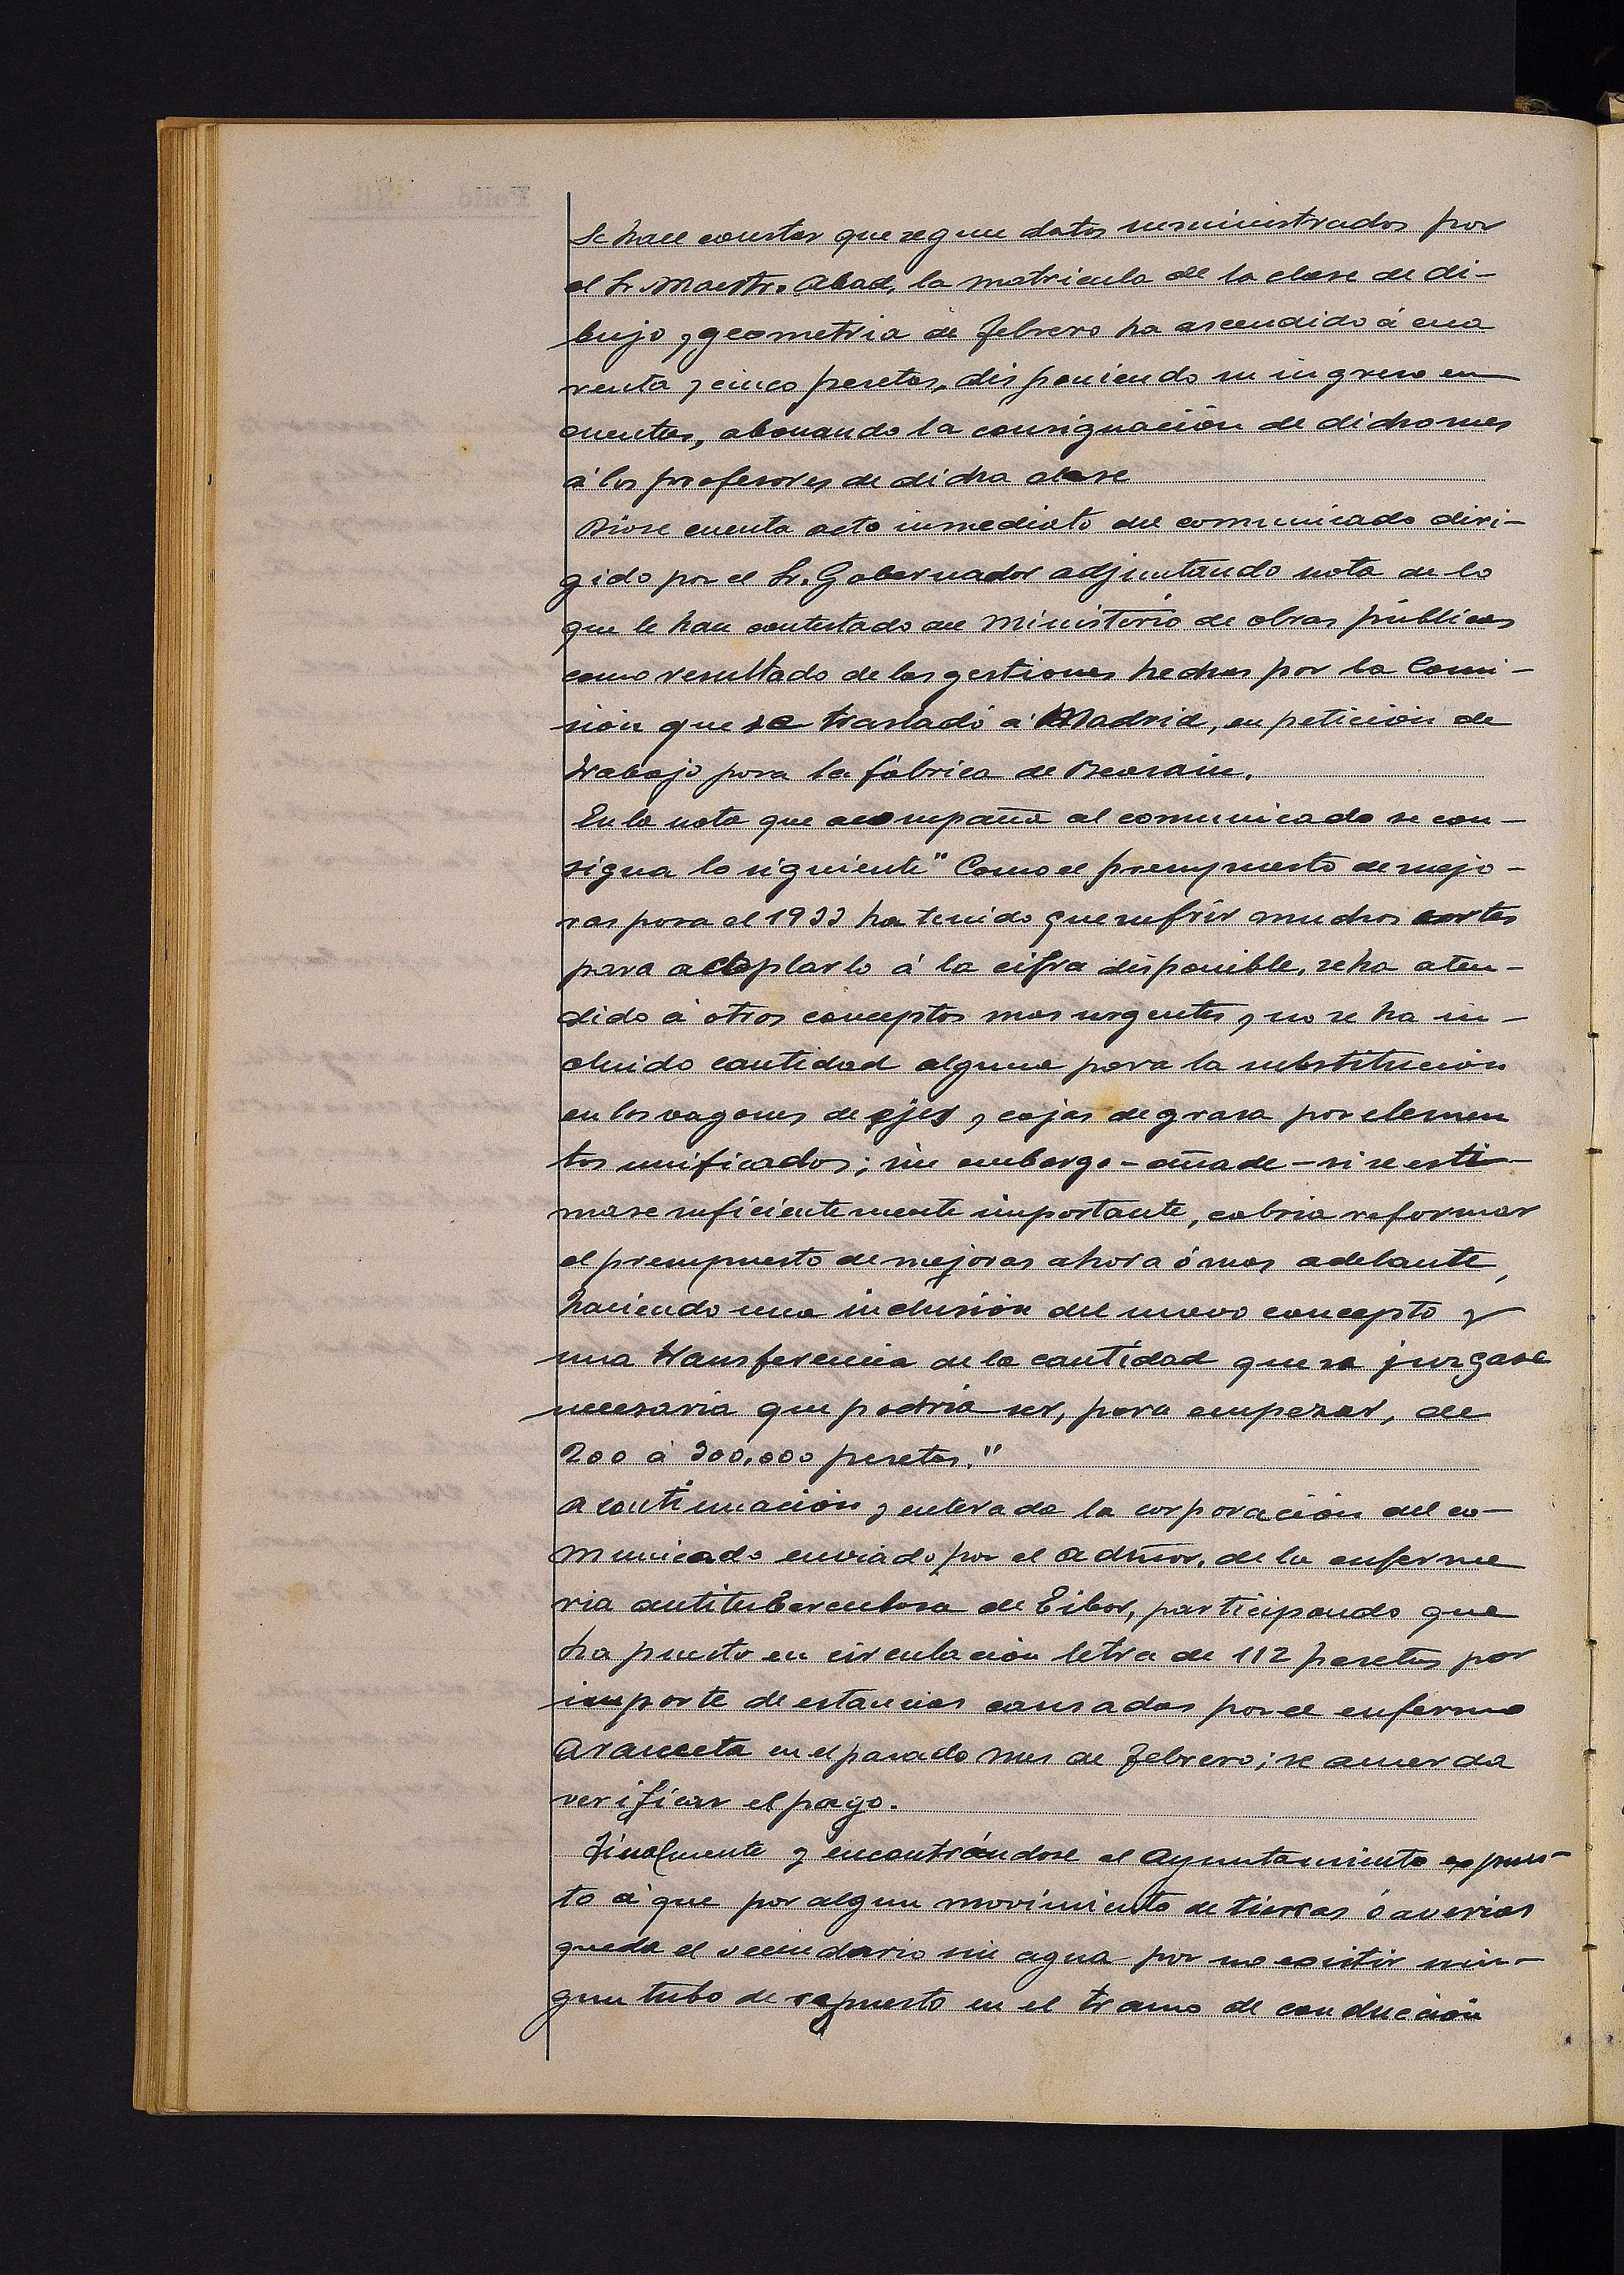 Se hace constar que segun datos suministrados por
el Sr. Maestro Abad, la matricula de la clase de di-
bujo y geometria de febrero ha ascendido á cua
renta y cinco pesetas, disponiendo su ingreso en
cuentas, abonando la consignación de dicho mes
á los profesores de dicha clase
Dióse cuenta acto inmediato del comunicado diri-
gido por el Sr. Gobernador adjuntando nota de lo
que le han contestado del Ministerio de obras públicas
como resultado de las gestiones hechas por la Comi-
sión que se trasladó á Madrid, en petición de
trabajo para la fábrica de Beasain.
En la nota que acompaña al comunicado se con-
signa lo siguiente "Como el presupuesto de mejo-
ras para el 1933 ha tenido que sufrir muchos cortes
para acoplarlo á la cifra disponible, se ha aten-
dido á otros conceptos mas urgentes y no se ha in-
cluido cantidad alguna para la substitución
en los vagones de ejes y cajas de grasa por elemen
tos unificados; sin embargo - añade - si se esti-
mase suficientemente importante, cabria reformar
el presupuesto de mejoras ahora ó mas adelante,
haciendo una inclusión del nuevo concepto y
una transferencia de la cantidad que se juzgase
necesaria que podria ser, para empezar, de
200 á 300.000 pesetas."
A continuación y enterada la corporación del co-
municado enviado por el Admor. de la enferme
ria antituberculosa de Eibar, participando que
ha puesto en circulación letra de 112 pesetas por
importe de estancias causadas por el enfermo
Aranceta en el pasado mes de febrero; se acuerda
verificar el pago.
Finalmente y encontrándose el Ayuntamiento expues-
to á que por algun movimiento de tierras ó averias
queda el vecindario sin agua por no existir nin-
gun tubo de repuesto en el tramo de conducción